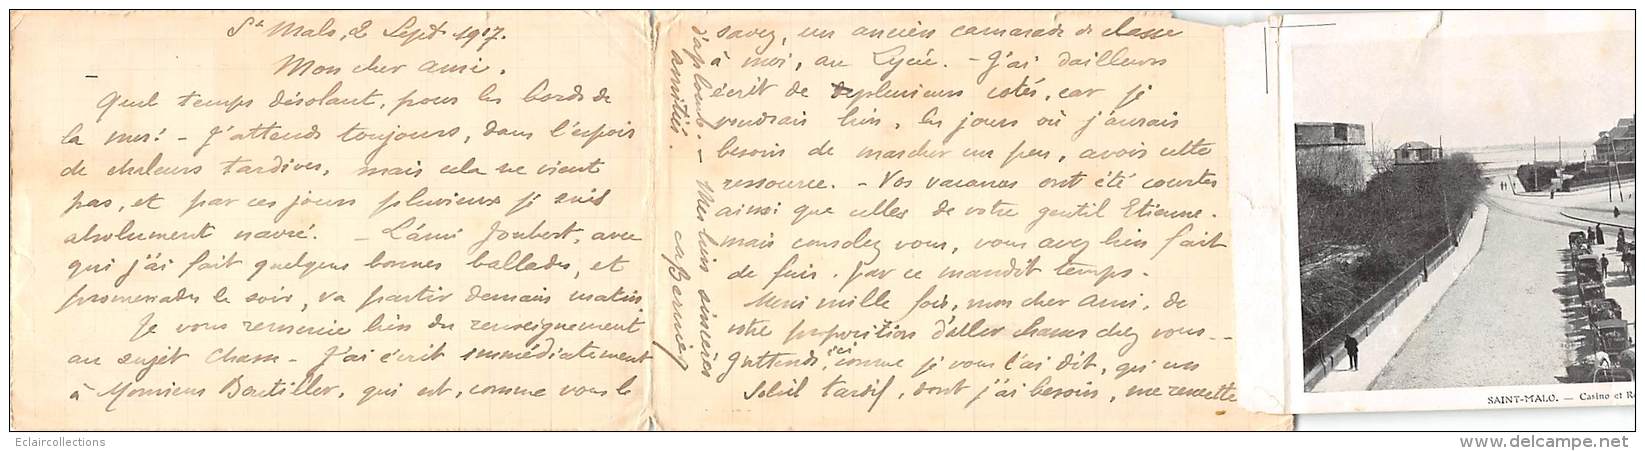 St Malo, 2 Septb 1917.
Mon cher ami.
Quel temps désolant, pour les bords de
la mer! - J'attends toujours, dans l'espoir
de chaleurs tardives, mais cela ne vient
pas, et par ces jours pluvieux je suis
absolument navré. - L'ami Joubert, avec
qui j'ai fait quelques bonnes ballades, et
promenades le soir, va partir demain matin
Je vous remercie bien du renseignement
au sujet chasse - J'ai écrit immédiatement
à Monsieur Boutiller, qui est, comme vous le
savez, un ancien camarade de classe
à moi, au Lycée. - J'ai d'ailleurs
écrit de plusieurs cotés, car je
voudrais bien, les jours où j'aurais
besoin de marcher un peu, avoir cette
ressource. - Vos vacances ont été courtes
ainsi que celles de votre gentil Etienne.
mais consolez vous, vous avez bien fait
de fuir. par ce maudit temps.
Merci mille fois, mon cher ami, de
votre proposition d'aller chasser chez vous - -
J'attends ici, comme je vous l'ai dit, qu'un
Soleil tardif, dont j'ai besoin, me remette
d'aplomb. - Mes biens sincères
amitiés.
SAINT-MALO. — Casino et R
Eclaircollections
www.delcampe.net